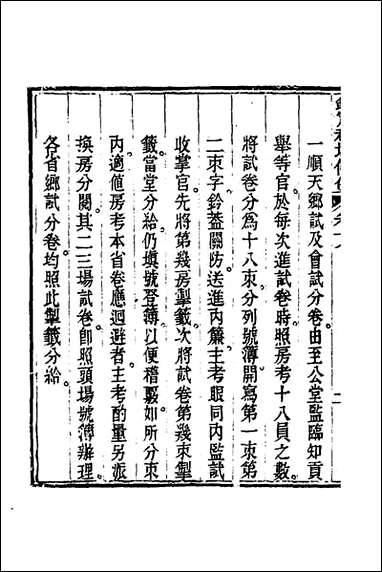 欽定科場條例 卷十八
一順天鄉試及會試分卷由至公堂監臨知貢
舉等官於每次進試卷時照房考十八員之數
將試卷分爲十八束分列號簿開寫第一束第
二束字鈐蓋關防送進內簾主考眼同內監試
收掌官先將第幾房掣籤次將試卷第幾束掣
籤當堂分給仍塡號登簿以便稽覈如所分束
內適値房考本省卷應迴避者主考酌量另派
換房分閱其二三場試卷卽照頭場號簿辦理
各省鄉試分卷均照此掣籤分給